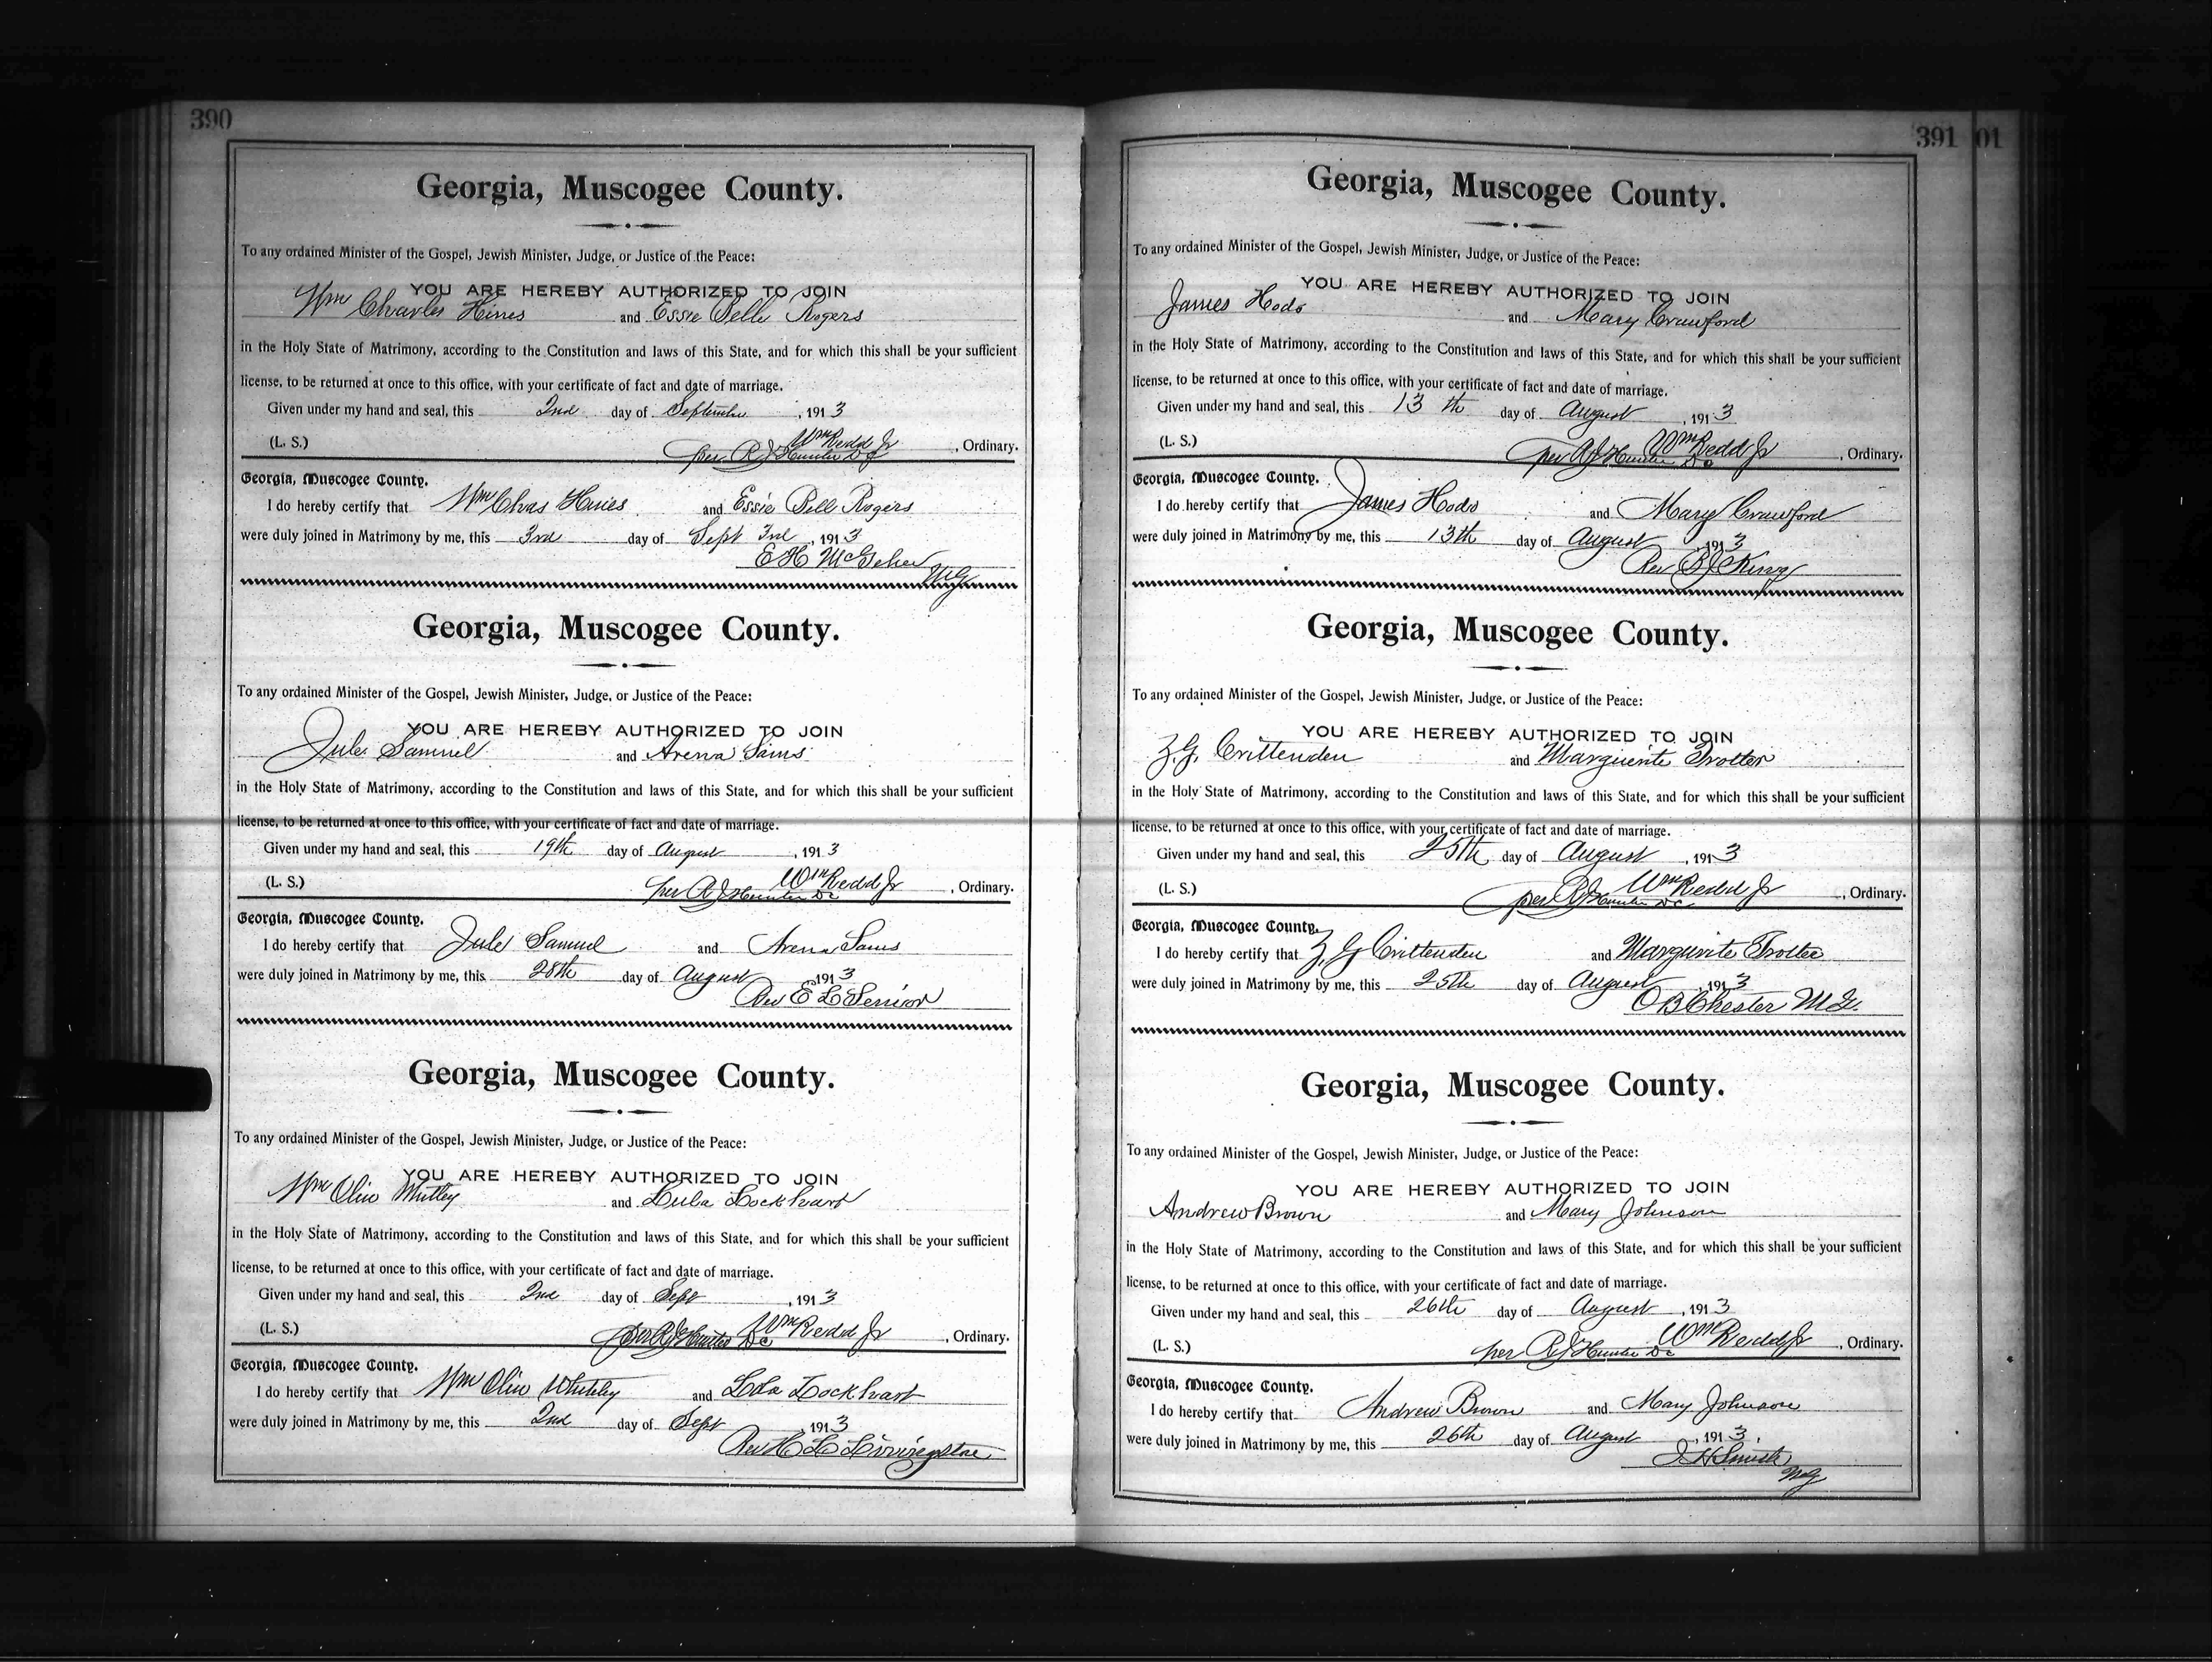 390
Georgia, Muscogee County.
To any ordained Minister of the Gospel, Jewish Minister, Judge, or Justice of the Peace:
YOU ARE HEREBY AUTHORIZED TO JOIN
Wm Charles Hines and Essie Belle Rogers
in the Holy State of Matrimony, according to the Constitution and laws of this State, and for which this shall be your sufficient
license, to be returned at once to this office, with your certificate of fact and date of marriage.
Given under my hand and seal, this 2nd day of September, 1913
(L. S.) Wm Redd Jr, Ordinary.
per R J Hunter D C
Georgia, Muscogee County.
I do hereby certify that Wm Chas Hines and Essie Bell Rogers
were duly joined in Matrimony by me, this 3rd day of Sept 3rd, 1913
E H McGehee
M G
Georgia, Muscogee County.
To any ordained Minister of the Gospel, Jewish Minister, Judge, or Justice of the Peace:
YOU ARE HEREBY AUTHORIZED TO JOIN
Jule Samuel and Arena Sams
in the Holy State of Matrimony, according to the Constitution and laws of this State, and for which this shall be your sufficient
license, to be returned at once to this office, with your certificate of fact and date of marriage.
Given under my hand and seal, this 19th day of August, 1913
(L. S.) Wm Redd Jr, Ordinary.
per R J Hunter D C
Georgia, Muscogee County.
I do hereby certify that Jule Samuel and Arena Sams
were duly joined in Matrimony by me, this 28th day of August 1913
Rev E L Senior
Georgia, Muscogee County.
To any ordained Minister of the Gospel, Jewish Minister, Judge, or Justice of the Peace:
YOU ARE HEREBY AUTHORIZED TO JOIN
Wm Olin Whitley and Lula Lockhart
in the Holy State of Matrimony, according to the Constitution and laws of this State, and for which this shall be your sufficient
license, to be returned at once to this office, with your certificate of fact and date of marriage.
Given under my hand and seal, this 2nd day of Sept, 1913
(L. S.) Wm Redd Jr, Ordinary.
per R J Hunter D C
Georgia, Muscogee County.
I do hereby certify that Wm Olin Whitley and Lola Lockhart
were duly joined in Matrimony by me, this 2nd day of Sept, 1913
Rev H L Livingston
391 01
Georgia, Muscogee County.
To any ordained Minister of the Gospel, Jewish Minister, Judge, or Justice of the Peace:
YOU ARE HEREBY AUTHORIZED TO JOIN
James Hodo and Mary Crawford
in the Holy State of Matrimony, according to the Constitution and laws of this State, and for which this shall be your sufficient
license, to be returned at once to this office, with your certificate of fact and date of marriage.
Given under my hand and seal, this 13th day of August, 1913
(L. S.) Wm Redd Jr, Ordinary.
per R J Hunter D C
Georgia, Muscogee County.
I do hereby certify that James Hodo and Mary Crawford
were duly joined in Matrimony by me, this 13th day of August, 1913
Rev B J King
Georgia, Muscogee County.
To any ordained Minister of the Gospel, Jewish Minister, Judge, or Justice of the Peace:
YOU ARE HEREBY AUTHORIZED TO JOIN
Z. G. Crittenden and Marguerite Trotter
in the Holy State of Matrimony, according to the Constitution and laws of this State, and for which this shall be your sufficient
license, to be returned at once to this office, with your certificate of fact and date of marriage.
Given under my hand and seal, this 25th day of August, 1913
(L. S.) Wm Redd Jr, Ordinary.
per R J Hunter D C
Georgia, Muscogee County.
I do hereby certify that Z. G Crittenden and Marguerite Trotter
were duly joined in Matrimony by me, this 25th day of August, 1913
O B Chester M G.
Georgia, Muscogee County.
To any ordained Minister of the Gospel, Jewish Minister, Judge, or Justice of the Peace:
YOU ARE HEREBY AUTHORIZED TO JOIN
Andrew Brown and Mary Johnson
in the Holy State of Matrimony, according to the Constitution and laws of this State, and for which this shall be your sufficient
license, to be returned at once to this office, with your certificate of fact and date of marriage.
Given under my hand and seal, this 26th day of August, 1913
(L. S.) Wm Redd Jr, Ordinary.
per R J Hunter D C
Georgia, Muscogee County.
I do hereby certify that Andrew Brown and Mary Johnson
were duly joined in Matrimony by me, this 26th day of August, 1913.
J H Smith
M G